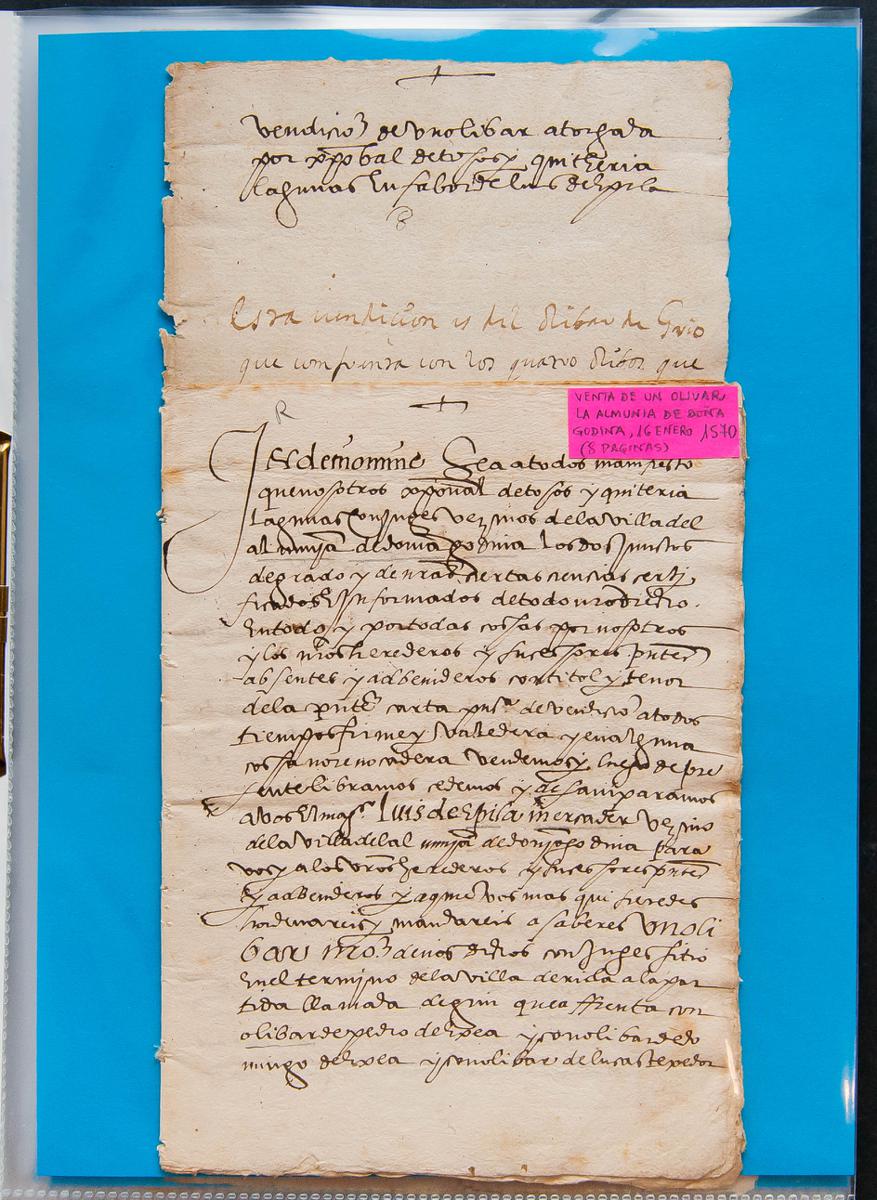 vendicion de vn olibar atorgada
por xpobal de tosos y quitheria
lagunas en fabor de luis de Epila
Esta vendicion es del olibar de Grio
que confrenta con los quatro olibos que
R
VENTA DE UN OLIVAR
LA ALMUNIA DE DOÑA
GODINA, 16 ENERO 1570
(8 PAGINAS)
In dei nomine Sea a todos manifiesto
que nosotros xpoual de tosos y quiteria
lagunas conjuges vezinos de la villa del
almunja de donia godina los dos Junctos
de grado y de nras ciertas ciencias certi
ficados E Informados de todo nro drecho
en todo y por todas cossas por nosotros
y los nros herederos y sucessores pntes
absentes y adbenideros con titol y tenor
de la pnte carta pu.ca de vendicion a todos
tiempos firme y valedera y en alguna
cossa no reuocadera vendemos y luego de pre
sente libramos cedemos y desamparamos
a vos El mag.co luis de Epila mercader vezino
de la villa del almunja de donja godina para
vos y a los vros herederos y sucessores pntes
y adbenideros y a quien vos mas quisieredes
ordenareis y mandareis a saber es vn oli
bar nro de nos dichos conjuges sitio
en el termino de la villa de ricla a la par
tida llamada de griu que affrenta con
olibar de pedro de Exea y con olibar de do
mingo de Exea y con olibar de lucas texedor